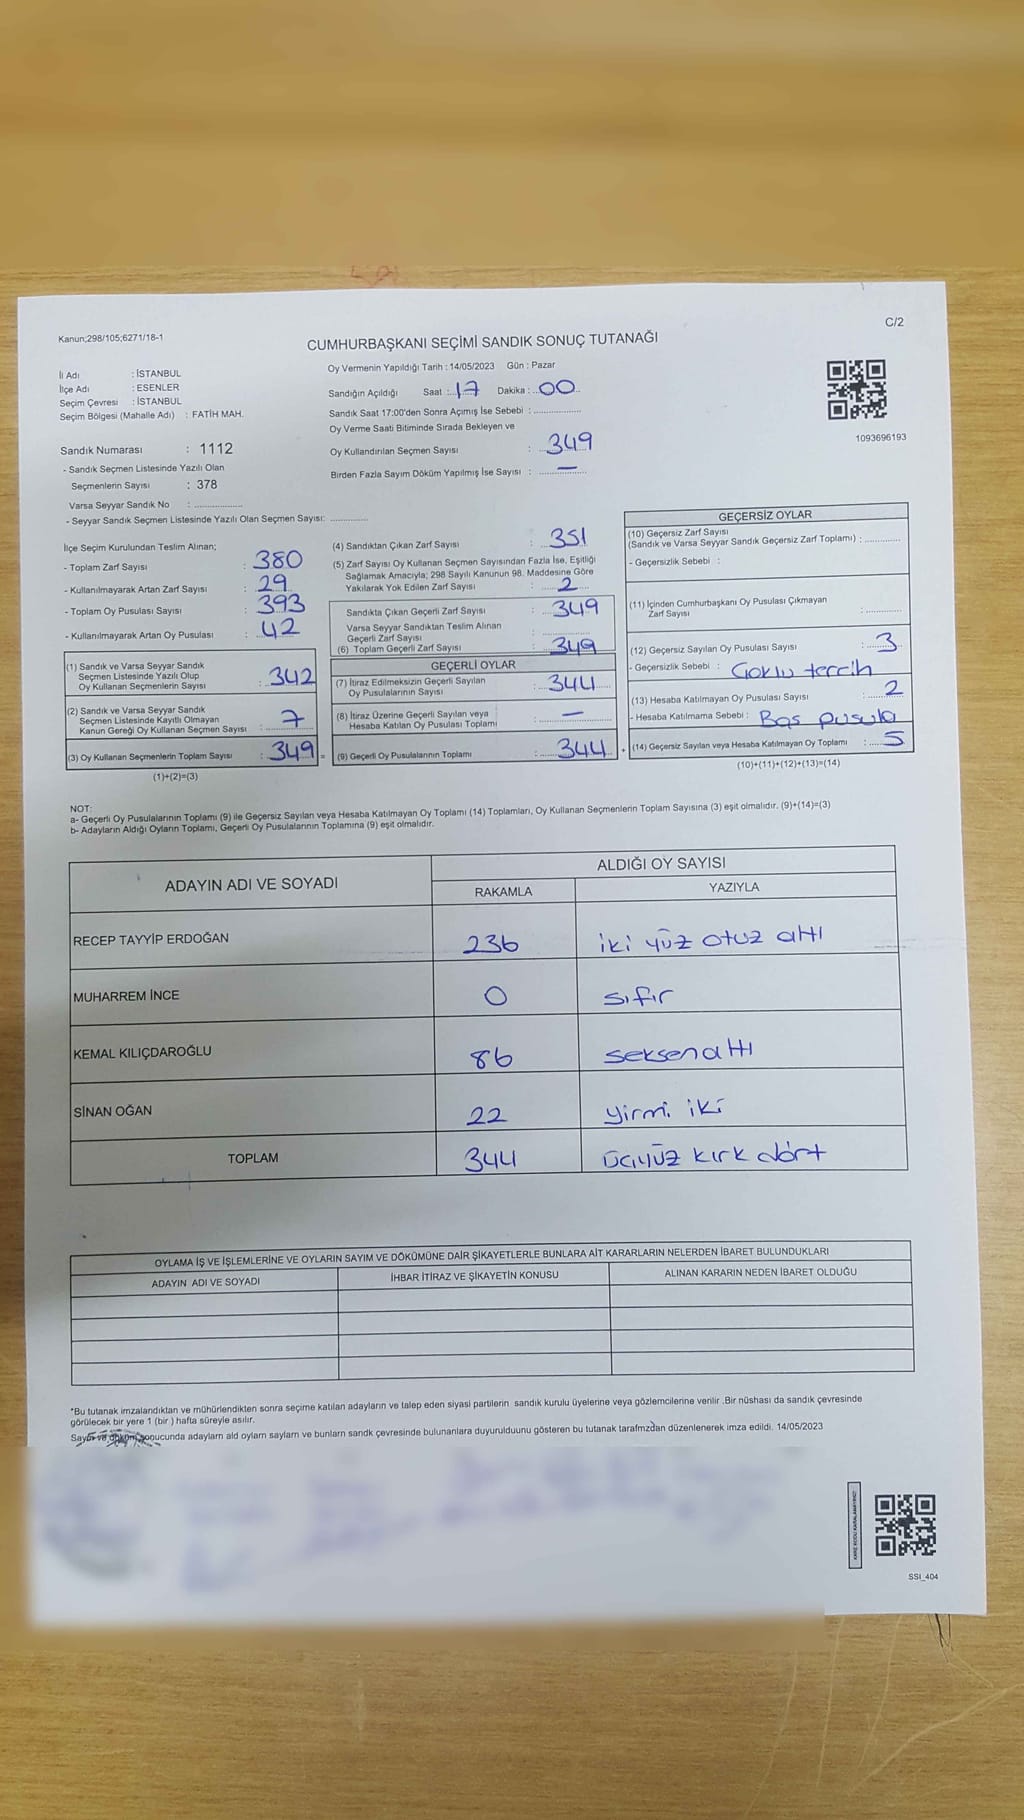 C/2
Kanun;298/105;6271/18-1
CUMHURBAŞKANI SEÇİMİ SANDIK SONUÇ TUTANAĞI
İl Adı : İSTANBUL
İlçe Adı : ESENLER
Seçim Çevresi : İSTANBUL
Seçim Bölgesi (Mahalle Adı) : FATİH MAH.
Oy Vermenin Yapıldığı Tarih : 14/05/2023 Gün : Pazar
Sandığın Açıldığı Saat : 17 Dakika : 00
Sandık Saat 17:00'den Sonra Açımış İse Sebebi :
Oy Verme Saati Bitiminde Sırada Bekleyen ve
Oy Kullandırılan Seçmen Sayısı : 349
Birden Fazla Sayım Döküm Yapılmış İse Sayısı : —
1093696193
Sandık Numarası : 1112
- Sandık Seçmen Listesinde Yazılı Olan
Seçmenlerin Sayısı : 378
Varsa Seyyar Sandık No :
- Seyyar Sandık Seçmen Listesinde Yazılı Olan Seçmen Sayısı:
İlçe Seçim Kurulundan Teslim Alınan;
- Toplam Zarf Sayısı : 380
- Kullanılmayarak Artan Zarf Sayısı : 29
- Toplam Oy Pusulası Sayısı : 393
- Kullanılmayarak Artan Oy Pusulası : 42
(1) Sandık ve Varsa Seyyar Sandık
Seçmen Listesinde Yazılı Olup
Oy Kullanan Seçmenlerin Sayısı : 342
(2) Sandık ve Varsa Seyyar Sandık
Seçmen Listesinde Kayıtlı Olmayan
Kanun Gereği Oy Kullanan Seçmen Sayısı : 7
(3) Oy Kullanan Seçmenlerin Toplam Sayısı : 349 =
(1)+(2)=(3)
(4) Sandıktan Çıkan Zarf Sayısı : 351
(5) Zarf Sayısı Oy Kullanan Seçmen Sayısından Fazla İse, Eşitliği
Sağlamak Amacıyla; 298 Sayılı Kanunun 98. Maddesine Göre
Yakılarak Yok Edilen Zarf Sayısı : 2
Sandıkta Çıkan Geçerli Zarf Sayısı : 349
Varsa Seyyar Sandıktan Teslim Alınan
Geçerli Zarf Sayısı :
(6) Toplam Geçerli Zarf Sayısı : 349
GEÇERLİ OYLAR
(7) İtiraz Edilmeksizin Geçerli Sayılan
Oy Pusulalarının Sayısı : 344
(8) İtiraz Üzerine Geçerli Sayılan veya
Hesaba Katılan Oy Pusulası Toplamı : —
(9) Geçerli Oy Pusulalarının Toplamı : 344 +
GEÇERSİZ OYLAR
(10) Geçersiz Zarf Sayısı
(Sandık ve Varsa Seyyar Sandık Geçersiz Zarf Toplamı) :
- Geçersizlik Sebebi :
(11) İçinden Cumhurbaşkanı Oy Pusulası Çıkmayan
Zarf Sayısı :
(12) Geçersiz Sayılan Oy Pusulası Sayısı : 3
- Geçersizlik Sebebi : Çoklu tercih
(13) Hesaba Katılmayan Oy Pusulası Sayısı : 2
- Hesaba Katılmama Sebebi : Boş pusula
(14) Geçersiz Sayılan veya Hesaba Katılmayan Oy Toplamı : 5
(10)+(11)+(12)+(13)=(14)
NOT:
a- Geçerli Oy Pusulalarının Toplamı (9) ile Geçersiz Sayılan veya Hesaba Katılmayan Oy Toplamı (14) Toplamları, Oy Kullanan Seçmenlerin Toplam Sayısına (3) eşit olmalıdır. (9)+(14)=(3)
b- Adayların Aldığı Oyların Toplamı, Geçerli Oy Pusulalarının Toplamına (9) eşit olmalıdır.
ADAYIN ADI VE SOYADI ALDIĞI OY SAYISI
RAKAMLA YAZIYLA
RECEP TAYYİP ERDOĞAN 236 iki yüz otuz altı
MUHARREM İNCE 0 sıfır
KEMAL KILIÇDAROĞLU 86 seksen altı
SİNAN OĞAN 22 yirmi iki
TOPLAM 344 üçyüz kırk dört
OYLAMA İŞ VE İŞLEMLERİNE VE OYLARIN SAYIM VE DÖKÜMÜNE DAİR ŞİKAYETLERLE BUNLARA AİT KARARLARIN NELERDEN İBARET BULUNDUKLARI
ADAYIN ADI VE SOYADI İHBAR İTİRAZ VE ŞİKAYETİN KONUSU ALINAN KARARIN NEDEN İBARET OLDUĞU
*Bu tutanak imzalandıktan ve mühürlendikten sonra seçime katılan adayların ve talep eden siyasi partilerin sandık kurulu üyelerine veya gözlemcilerine verilir .Bir nüshası da sandık çevresinde
görülecek bir yere 1 (bir ) hafta süreyle asılır.
Sayım ve döküm sonucunda adayların ald oyların saylarn ve bunların sandk çevresinde bulunanlara duyurulduunu gösteren bu tutanak tarafmzdan düzenlenerek imza edildi. 14/05/2023
SSI_404